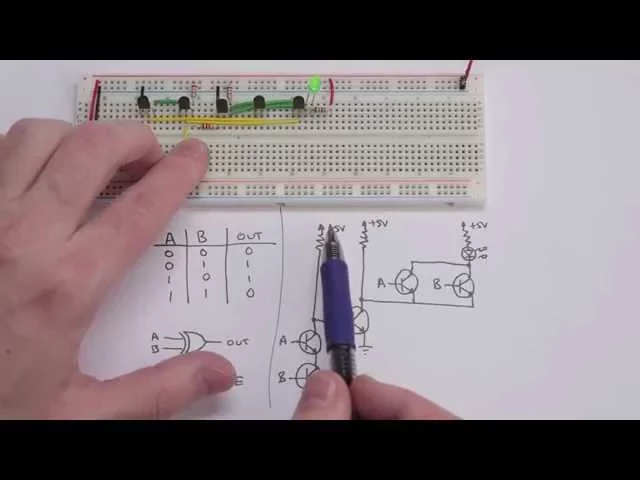 A B OUT
0 0 0
0 1 1
1 0 1
1 1 0
A
B OUT
+5V
+5V
+5V
A B
A
B